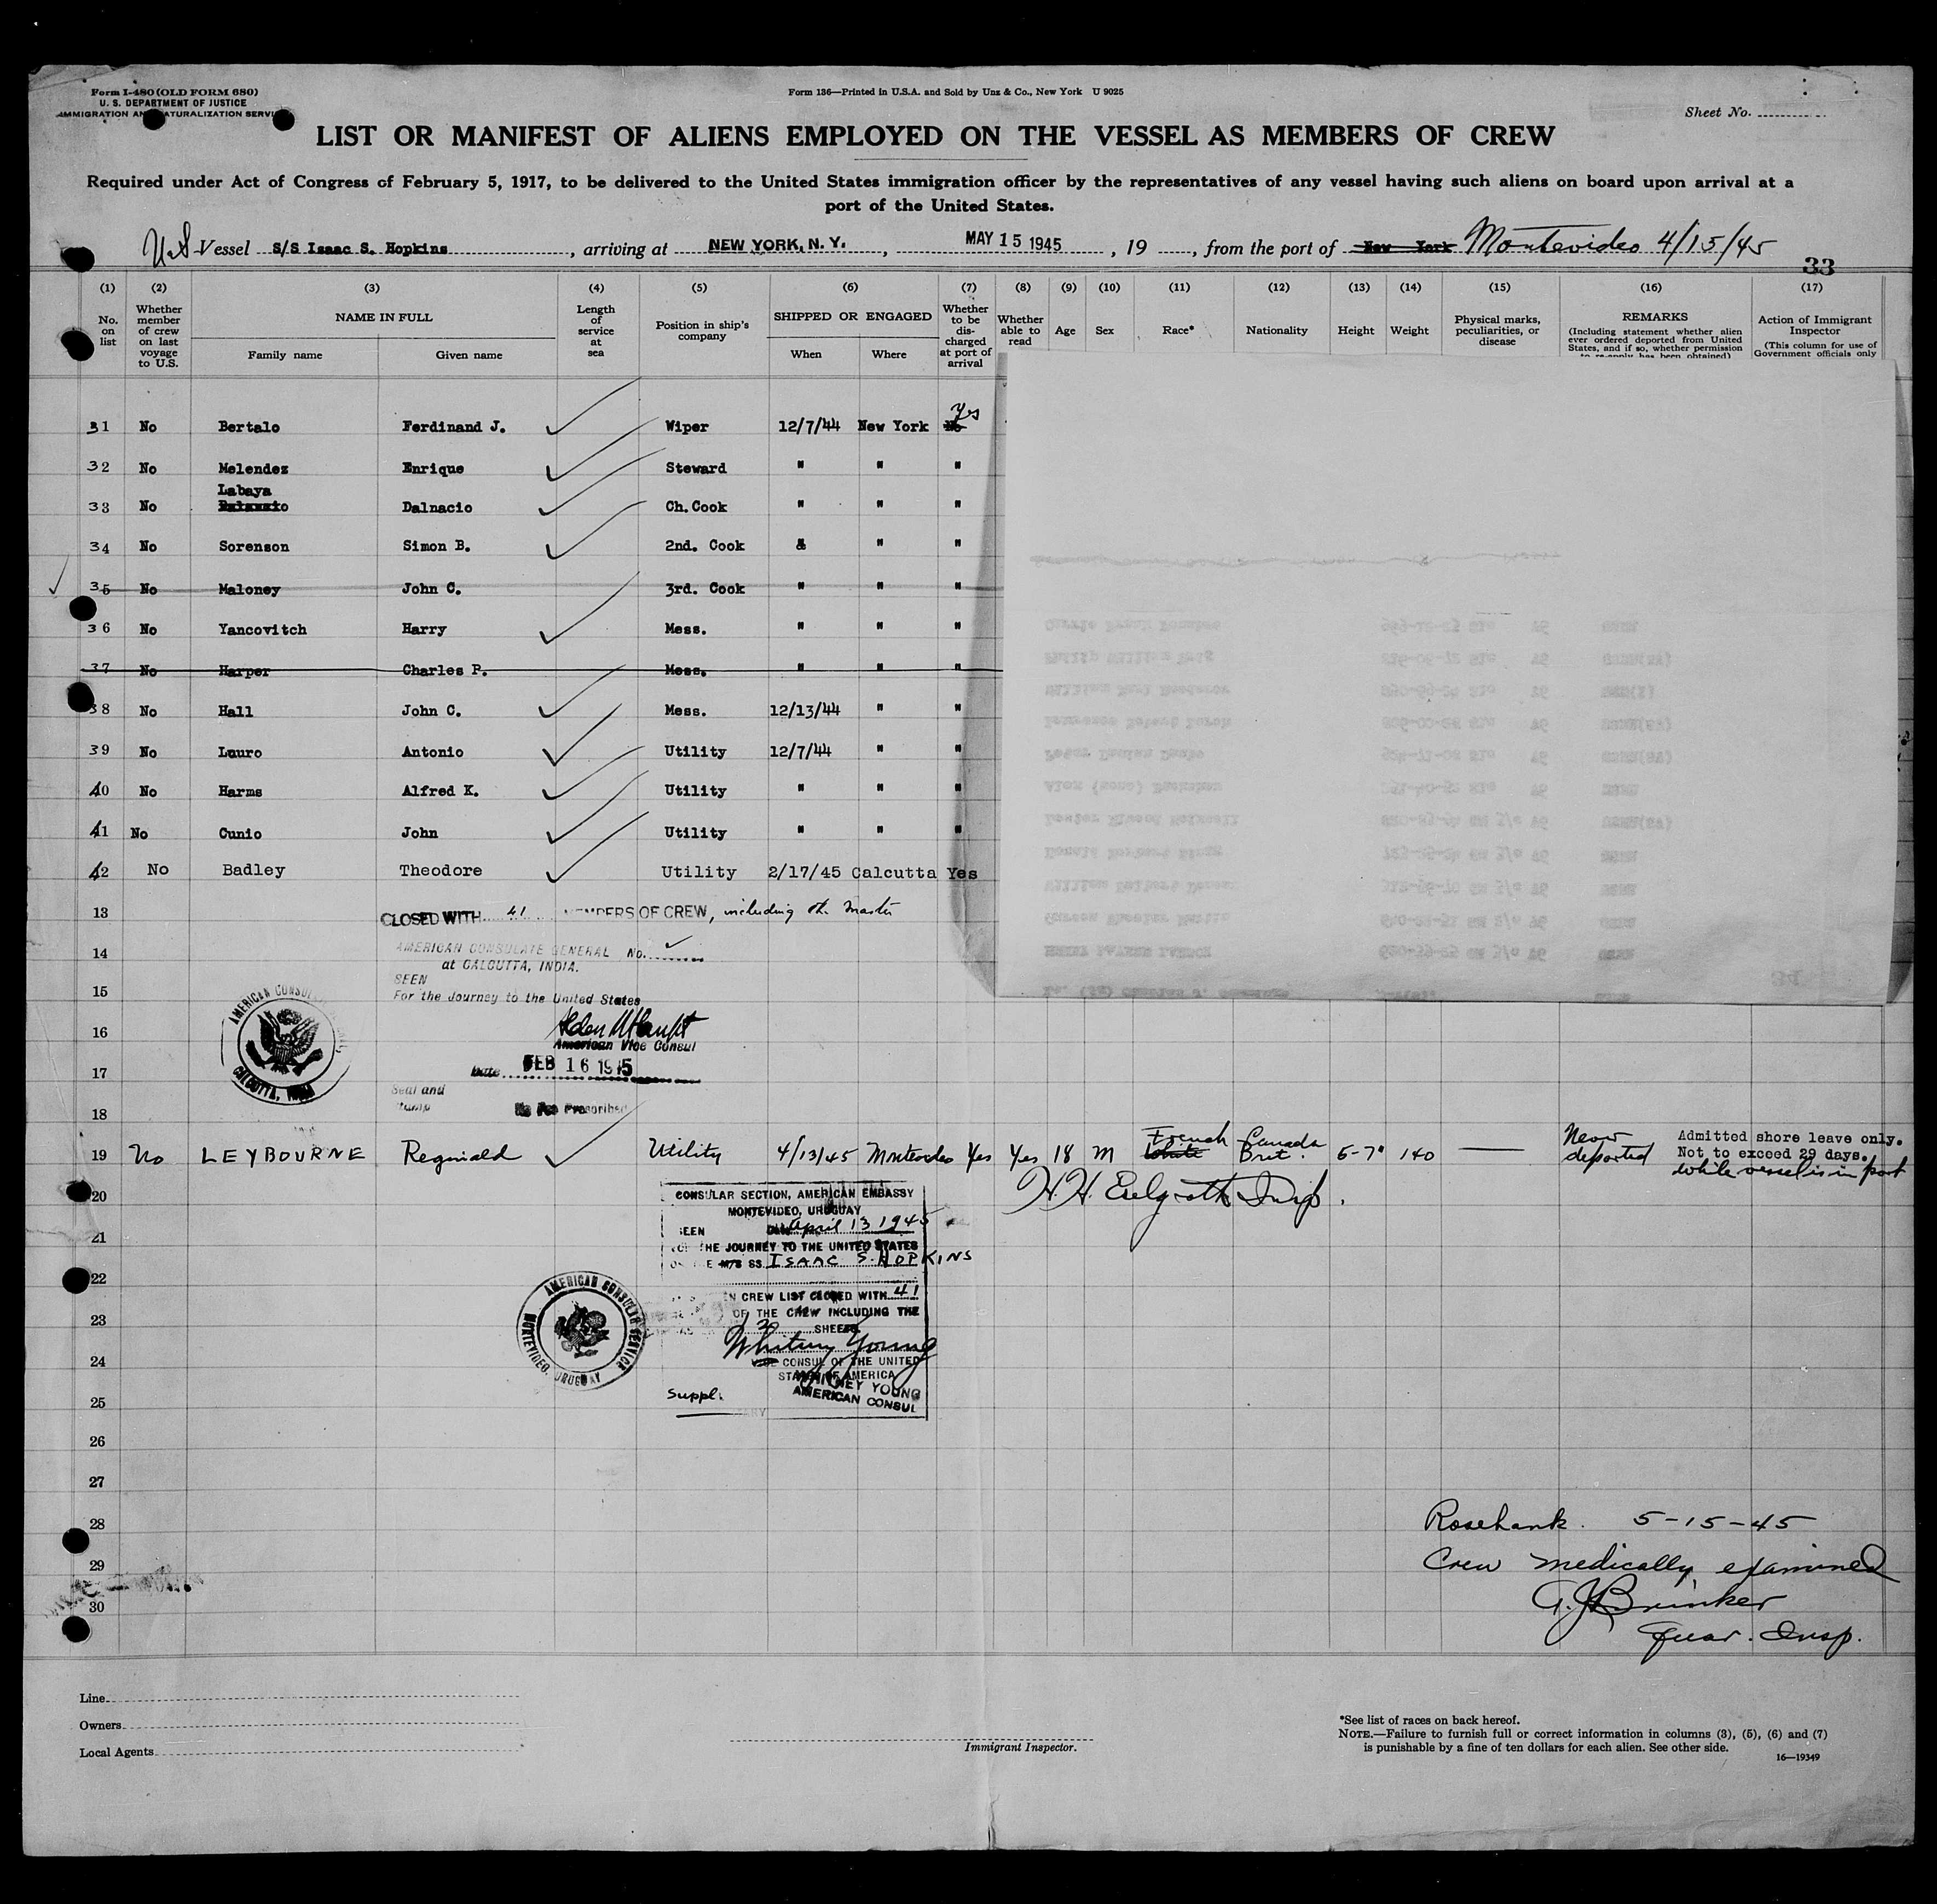 Form I-480 (OLD FORM 680)
U. S. DEPARTMENT OF JUSTICE
IMMIGRATION AND NATURALIZATION SERVICE
Form 136—Printed in U.S.A. and Sold by Unz & Co., New York U 9025
Sheet No.
LIST OR MANIFEST OF ALIENS EMPLOYED ON THE VESSEL AS MEMBERS OF CREW
Required under Act of Congress of February 5, 1917, to be delivered to the United States immigration officer by the representatives of any vessel having such aliens on board upon arrival at a
port of the United States.
U.S. Vessel S/S Isaac S. Hopkins, arriving at NEW YORK, N. Y., MAY 15 1945, 19, from the port of New York Montevideo 4/15/45
33
(1) (2) (3) (4) (5) (6) (7) (8) (9) (10) (11) (12) (13) (14) (15) (16) (17)
No. on list
Whether member of crew on last voyage to U.S.
NAME IN FULL
Family name
Given name
Length of service at sea
Position in ship's company
SHIPPED OR ENGAGED
When
Where
Whether to be discharged at port of arrival
Whether able to read
Age
Sex
Race*
Nationality
Height
Weight
Physical marks, peculiarities, or disease
REMARKS
(Including statement whether alien ever ordered deported from United States, and if so, whether permission to re-apply has been obtained)
Action of Immigrant Inspector
(This column for use of Government officials only
Yes
31 No Bertalo Ferdinand J. Wiper 12/7/44 New York No
32 No Melendez Enrique Steward " " "
Labaya
33 No Dalnacio Ch. Cook " " "
34 No Sorenson Simon B. 2nd. Cook & " "
35 No Maloney John C. 3rd. Cook " " "
36 No Yancovitch Harry Mess. " " "
37 No Harper Charles P. Mess. " " "
38 No Hall John C. Mess. 12/13/44 " "
39 No Lauro Antonio Utility 12/7/44 " "
40 No Harms Alfred K. Utility " " "
41 No Cunio John Utility " " "
42 No Badley Theodore Utility 2/17/45 Calcutta Yes
13 CLOSED WITH 41 MEMBERS OF CREW, including the Master
AMERICAN CONSULATE GENERAL No.
14 at CALCUTTA, INDIA.
SEEN
15 For the Journey to the United States
AMERICAN CONSUL
CALCUTTA, INDIA
16
American Vice Consul
17 Date FEB 16 1945
Seal and
Stamp No Fee Prescribed
18
19 No LEYBOURNE Reginald Utility 4/13/45 Montevideo Yes Yes 18 M White French Canada Brit. 5-7" 140 — Never deported
Admitted shore leave only.
Not to exceed 29 days.
while vessel is in port
20 CONSULAR SECTION, AMERICAN EMBASSY
MONTEVIDEO, URUGUAY
SEEN April 13 1945
21 THE JOURNEY TO THE UNITED STATES
M/S SS. ISAAC S. HOPKINS
22 CREW LIST CLOSED WITH 41
OF THE CREW INCLUDING THE
23 SHEETS
Whitney Young
24 VICE CONSUL OF THE UNITED
STATES OF AMERICA
WHITNEY YOUNG
AMERICAN CONSUL
Suppl.
AMERICAN CONSULAR SERVICE
MONTEVIDEO, URUGUAY
25
26
27
28 Rosebank. 5-15-45
29 Crew medically examined
30 A. J. Brinker
Quar. Insp.
Line
Owners
Local Agents
Immigrant Inspector.
*See list of races on back hereof.
NOTE.—Failure to furnish full or correct information in columns (3), (5), (6) and (7)
is punishable by a fine of ten dollars for each alien. See other side.
16—19349